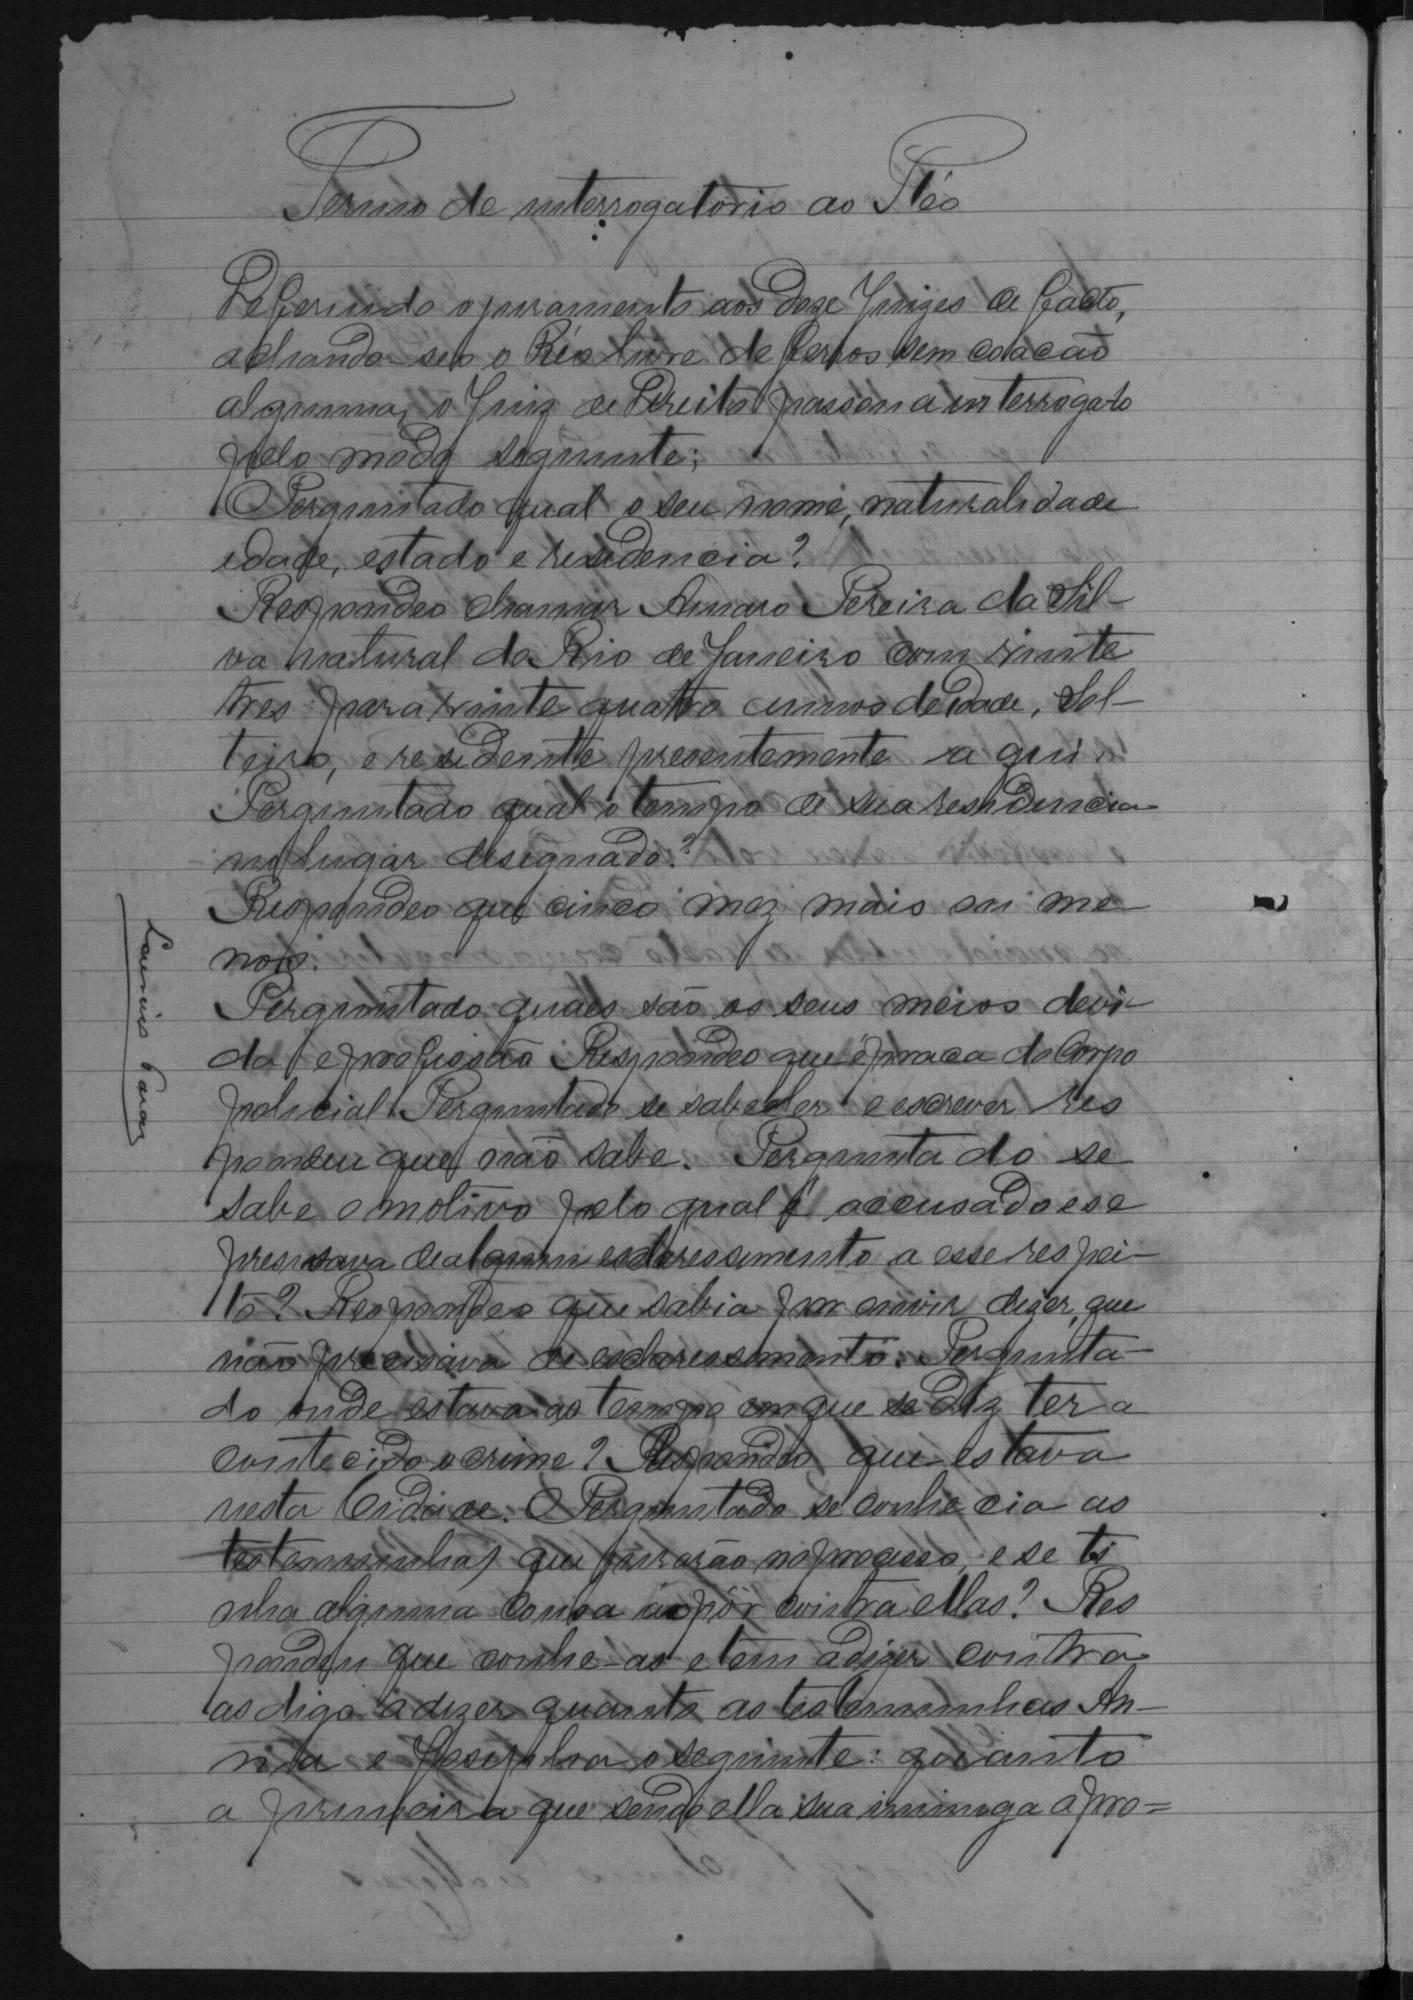 Termo de interrogatorio ao Réo
Deferindo o juramento aos doze Juizes de facto,
achando-se o Réo livre de ferros sem coacão
alguma, o Juiz de Direito passou a interrogalo
pelo modo seguinte;
Perguntado qual o seu nome, naturalidade
idade, estado e residencia?
Respondeo chamar Amaro Pereira da Sil-
va natural do Rio de Janeiro com vinte
tres para vinte quatro annos de idade, Sol-
teiro, e residente presentemente aqui.
Perguntado qual o tempo de sua residencia
no lugar designado?
Respondeo que cinco mez mais ou me-
nos.
Perguntado quaes são os seus meios de vi-
da e profissão Respondeo que é praca do Corpo
policial. Perguntado se sabe ler e escrever res
pondeu que não sabe. Pergunta do se
sabe o motivo pelo qual é accusado e se
presisava de algum esclaressimento a esse respei-
to? Respondeo que sabia por ouvir dizer, que
não precisava de esclaressimento. Pergunta-
do onde estava ao tempo em que se diz ter a
contecido o crime? Respondeo que estava
nesta Cidade. Perguntado se conhecia as
testemunhas que jurarão no processo, e se ti
nha alguma cousa a opôr contra ellas? Res
pondeu que conhe-as e tem a dizer contra
as digo a dizer quanto as testemunhas An-
na e Josepha o seguinte: quanto
a primeira que sendo ella sua inimiga a pro=